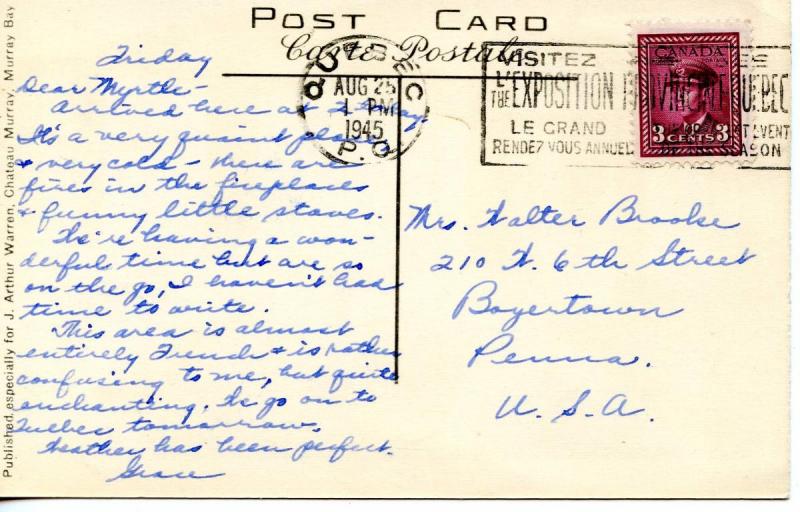 POST CARD
Carte Postale
QUEBEC
AUG 25
1 PM
1945
P.Q
VISITEZ
L'EXPOSITION PROVINCIALE QUEBEC
THE
LE GRAND
RENDEZ VOUS ANNUEL
EVENT
SEASON
CANADA
3 CENTS 3
Friday
Dear Myrtle-
Arrived here at
It's a very quaint place
& very cold - there are
fires in the fireplaces
& funny little stoves.
We're having a won-
derful time but are so
on the go, I haven't had
time to write.
This area is almost
entirely French & is rather
confusing to me, but quite
enchanting. We go on to
Quebec tomorrow.
Weather has been perfect.
Grace
Mrs. Walter Brooke
210 W. 6th Street
Boyertown
Penna.
U.S.A.
Published especially for J. Arthur Warren, Chateau Murray, Murray Bay